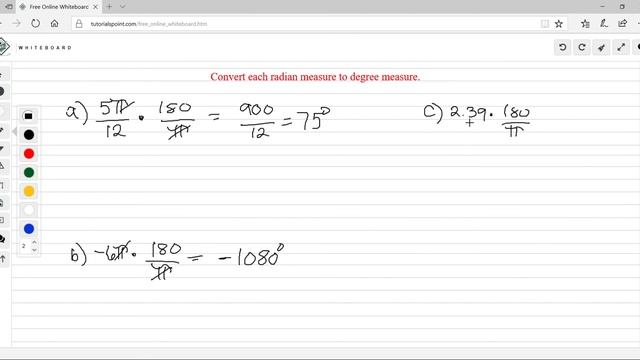 Free Online Whiteboard
tutorialspoint.com/free_online_whiteboard.htm
WHITEBOARD
Convert each radian measure to degree measure.
a) 5π/12 • 180/π = 900/12 = 75°
c) 2.39 • 180/π
b) -6π • 180/π = -1080°
2